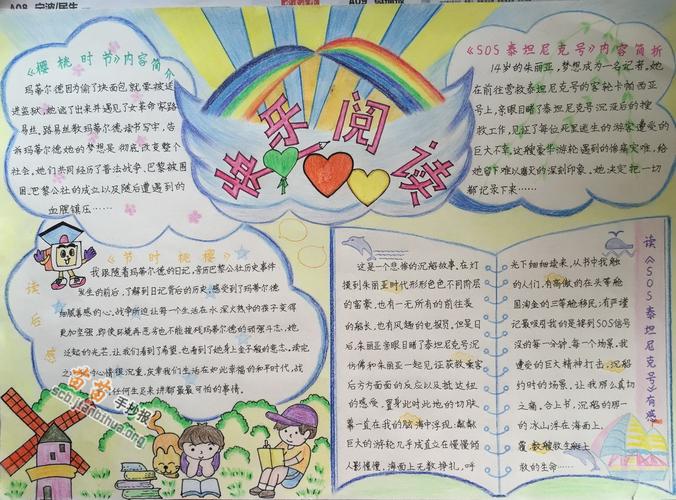 A08 宁波/民生
快乐阅读
《樱桃时节》内容简介
玛蒂尔德因为偷了块面包就要被送
进监狱。她逃了出来并遇见了女革命家路
易丝,路易丝教玛蒂尔德读书写字,告
诉玛蒂尔德她的梦想是:彻底改变整个
社会。她们共同经历了普法战争、巴黎被围
困、巴黎公社的成立以及随后遭遇到的
血腥镇压……
《SOS泰坦尼克号》内容简析
14岁的朱丽亚,梦想成为一名记者。她
在前往营救泰坦尼克号的客轮卡帕西亚
号上,亲眼目睹了泰坦尼克号沉没后的搜
救工作,见证了每位死里逃生的游客遭受的
巨大不幸。这艘豪华游轮遇到的惨痛灾难,给
她留下难以磨灭的深刻印象。她决定把一切
都记录下来……
《节时桃樱》
读后感
我跟随着玛蒂尔德的日记,亲历巴黎公社历史事件
发生的前后,了解到日记背后的历史,感受到了玛蒂尔德
细腻善感的心。战争所迫让每一个生活在水深火热中的孩子变得
更加坚强,即使环境再恶劣也不能被残玛蒂尔德的顽强斗志。她
泛起的光芒,让我们看到了希望,也看到了她身上金子般的意志。读完
心情很沉重,庆幸我们生活在如此幸福的和平时代,战
任何生灵来讲都最最可怕的事情。
这是一个悲惨的沉船故事。在灯
摸到朱丽亚时代形形色色不同阶层
的富豪,也有一无所有的前往美
的船长,也有风趣的电报员,但是日
后,朱丽亚亲眼目睹了泰坦尼克号沉
仿佛和朱丽亚一起见证获救乘客
后方方面面的反应以及抵达纽
的感受。置身此时此地的切肤
幕一直在我的脑海中浮现:飘飘
巨大的游轮几乎成直立在慢慢倾
人影憧憧,海面上无数挣扎,呼
光下细细读来,从书中我触
的人们,有高傲的在头等舱
国淘金的三等舱移民;有严谨
记最吸引我的是接到SOS信号
没的每一分钟,每一个场景。我
遭受的巨大精神打击;沉船
约时的场景,让我那么真切
之痛。合上书,沉船的那一
的冰山浮在海面上,
霞,数艘救生艇上
救的生命……
读《SOS泰坦尼克号》有感
苗苗手抄报
scb.jianbihua.org